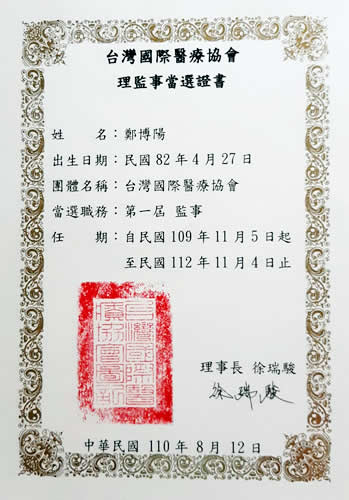 台灣國際醫療協會
理監事當選證書
姓　　名：鄭博陽
出生日期：民國 82 年 4 月 27 日
團體名稱：台灣國際醫療協會
當選職務：第一屆 監事
任　　期：自民國 109 年 11 月 5 日起
至民國 112 年 11 月 4 日止
台灣國際醫療協會圖記
理事長 徐瑞駿
徐瑞駿
中華民國 110 年 8 月 12 日